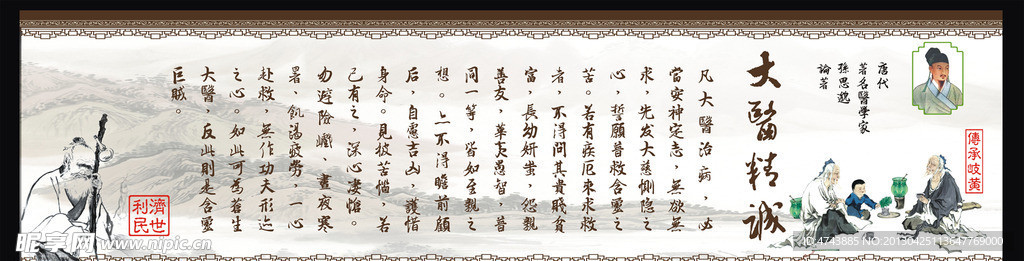 傳承岐黃
唐代
著名醫學家
孫思邈
論著
大醫精誠
凡大醫治病，必
當安神定志，無欲無
求，先发大慈惻隱之
心，誓願普救含靈之
苦。若有疾厄來求救
者，不得問其貴賤貧
富，長幼妍蚩，怨親
善友，華夷愚智，普
同一等，皆如至親之
想。上不得瞻前顧
后，自慮吉凶，護惜
身命。見彼苦惱，若
己有之，深心淒愴。
勿避險巇，晝夜寒
暑、飢渴疲勞，一心
赴救，無作功夫形迹
之心。如此可為蒼生
大醫，反此則是含靈
巨賊。
濟世
利民
昵享网 www.nipic.cn
ID:4743885 NO:20130425113647769000